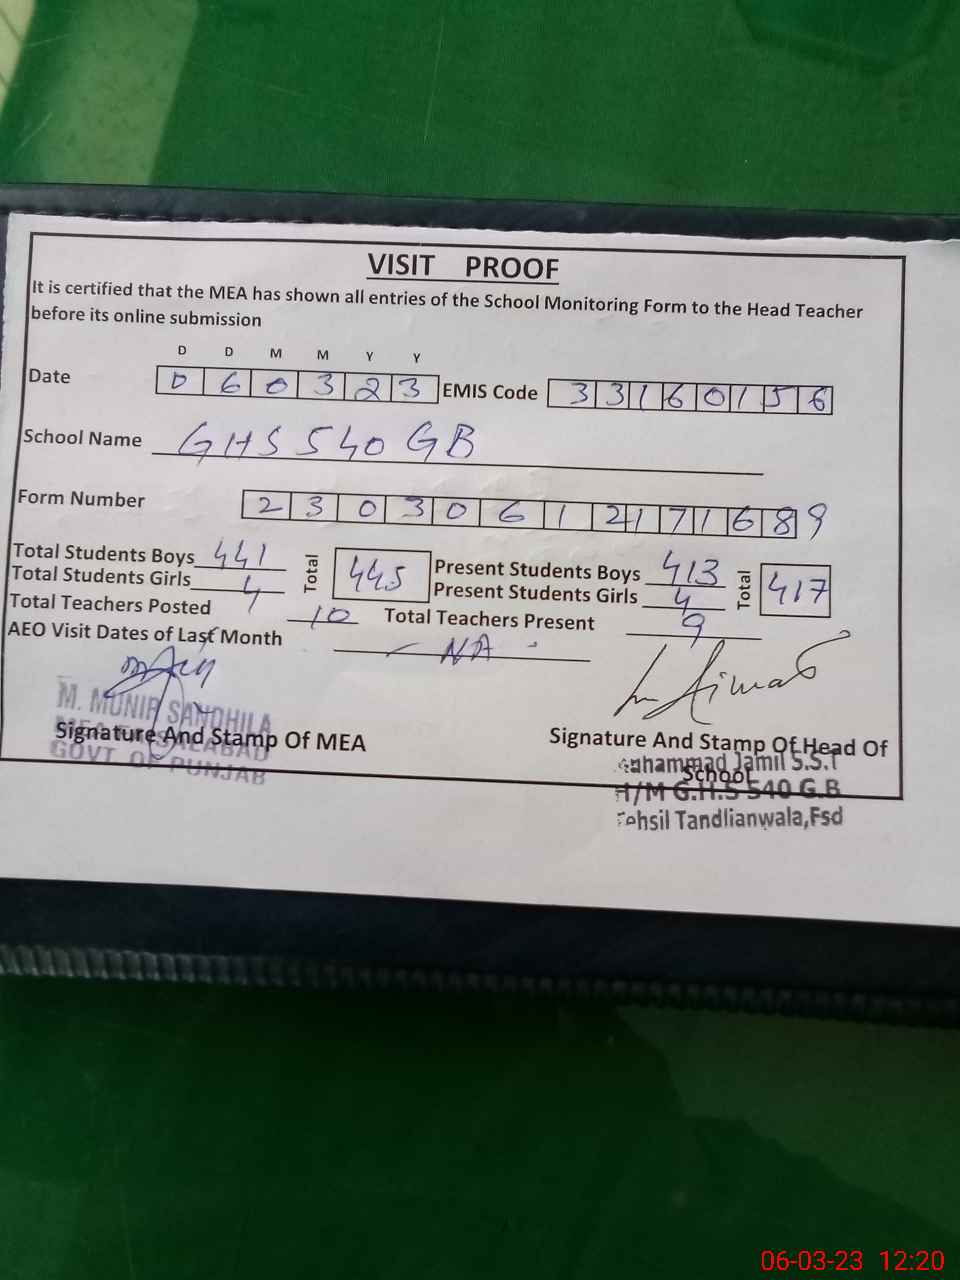 VISIT PROOF
It is certified that the MEA has shown all entries of the School Monitoring Form to the Head Teacher
before its online submission
D D M M Y Y
Date 0 6 0 3 2 3 EMIS Code 3 3 1 6 0 1 5 6
School Name GHS 540 GB
Form Number 2 3 0 3 0 6 1 2 1 7 1 6 8 9
Total Students Boys 441 Total 445 Present Students Boys 413 Total 417
Total Students Girls 4 Present Students Girls 4
Total Teachers Posted 10 Total Teachers Present 9
AEO Visit Dates of Last Month - NA -
M. MUNIR SANDHILA
MEA FAISALABAD
GOVT. OF PUNJAB
Signature And Stamp Of MEA
Signature And Stamp Of Head Of
School
Muhammad Jamil S.S.T
H/M G.H.S 540 G.B
Tehsil Tandlianwala,Fsd
06-03-23 12:20